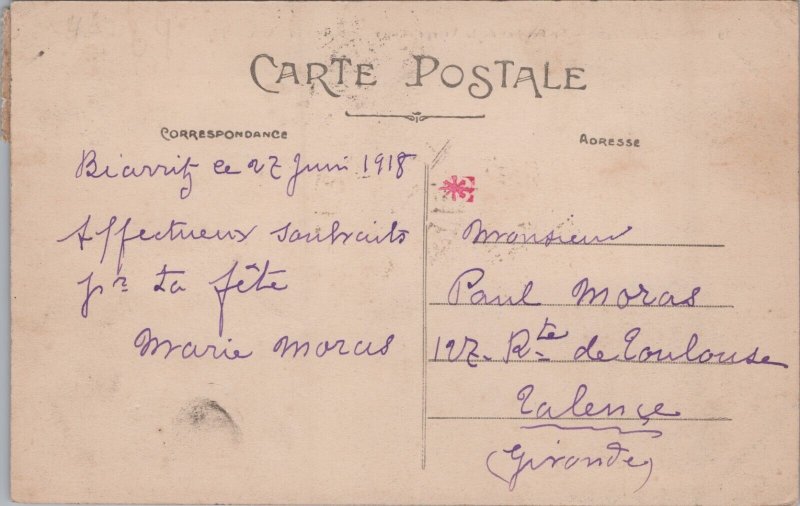 CARTE POSTALE
CORRESPONDANCE
Biarritz ce 27 Juin 1918
Affectueux souhaits
pr ta fête
Marie Moras
ADRESSE
Monsieur
Paul Moras
127. Rte de Toulouse
Talence
(Gironde)